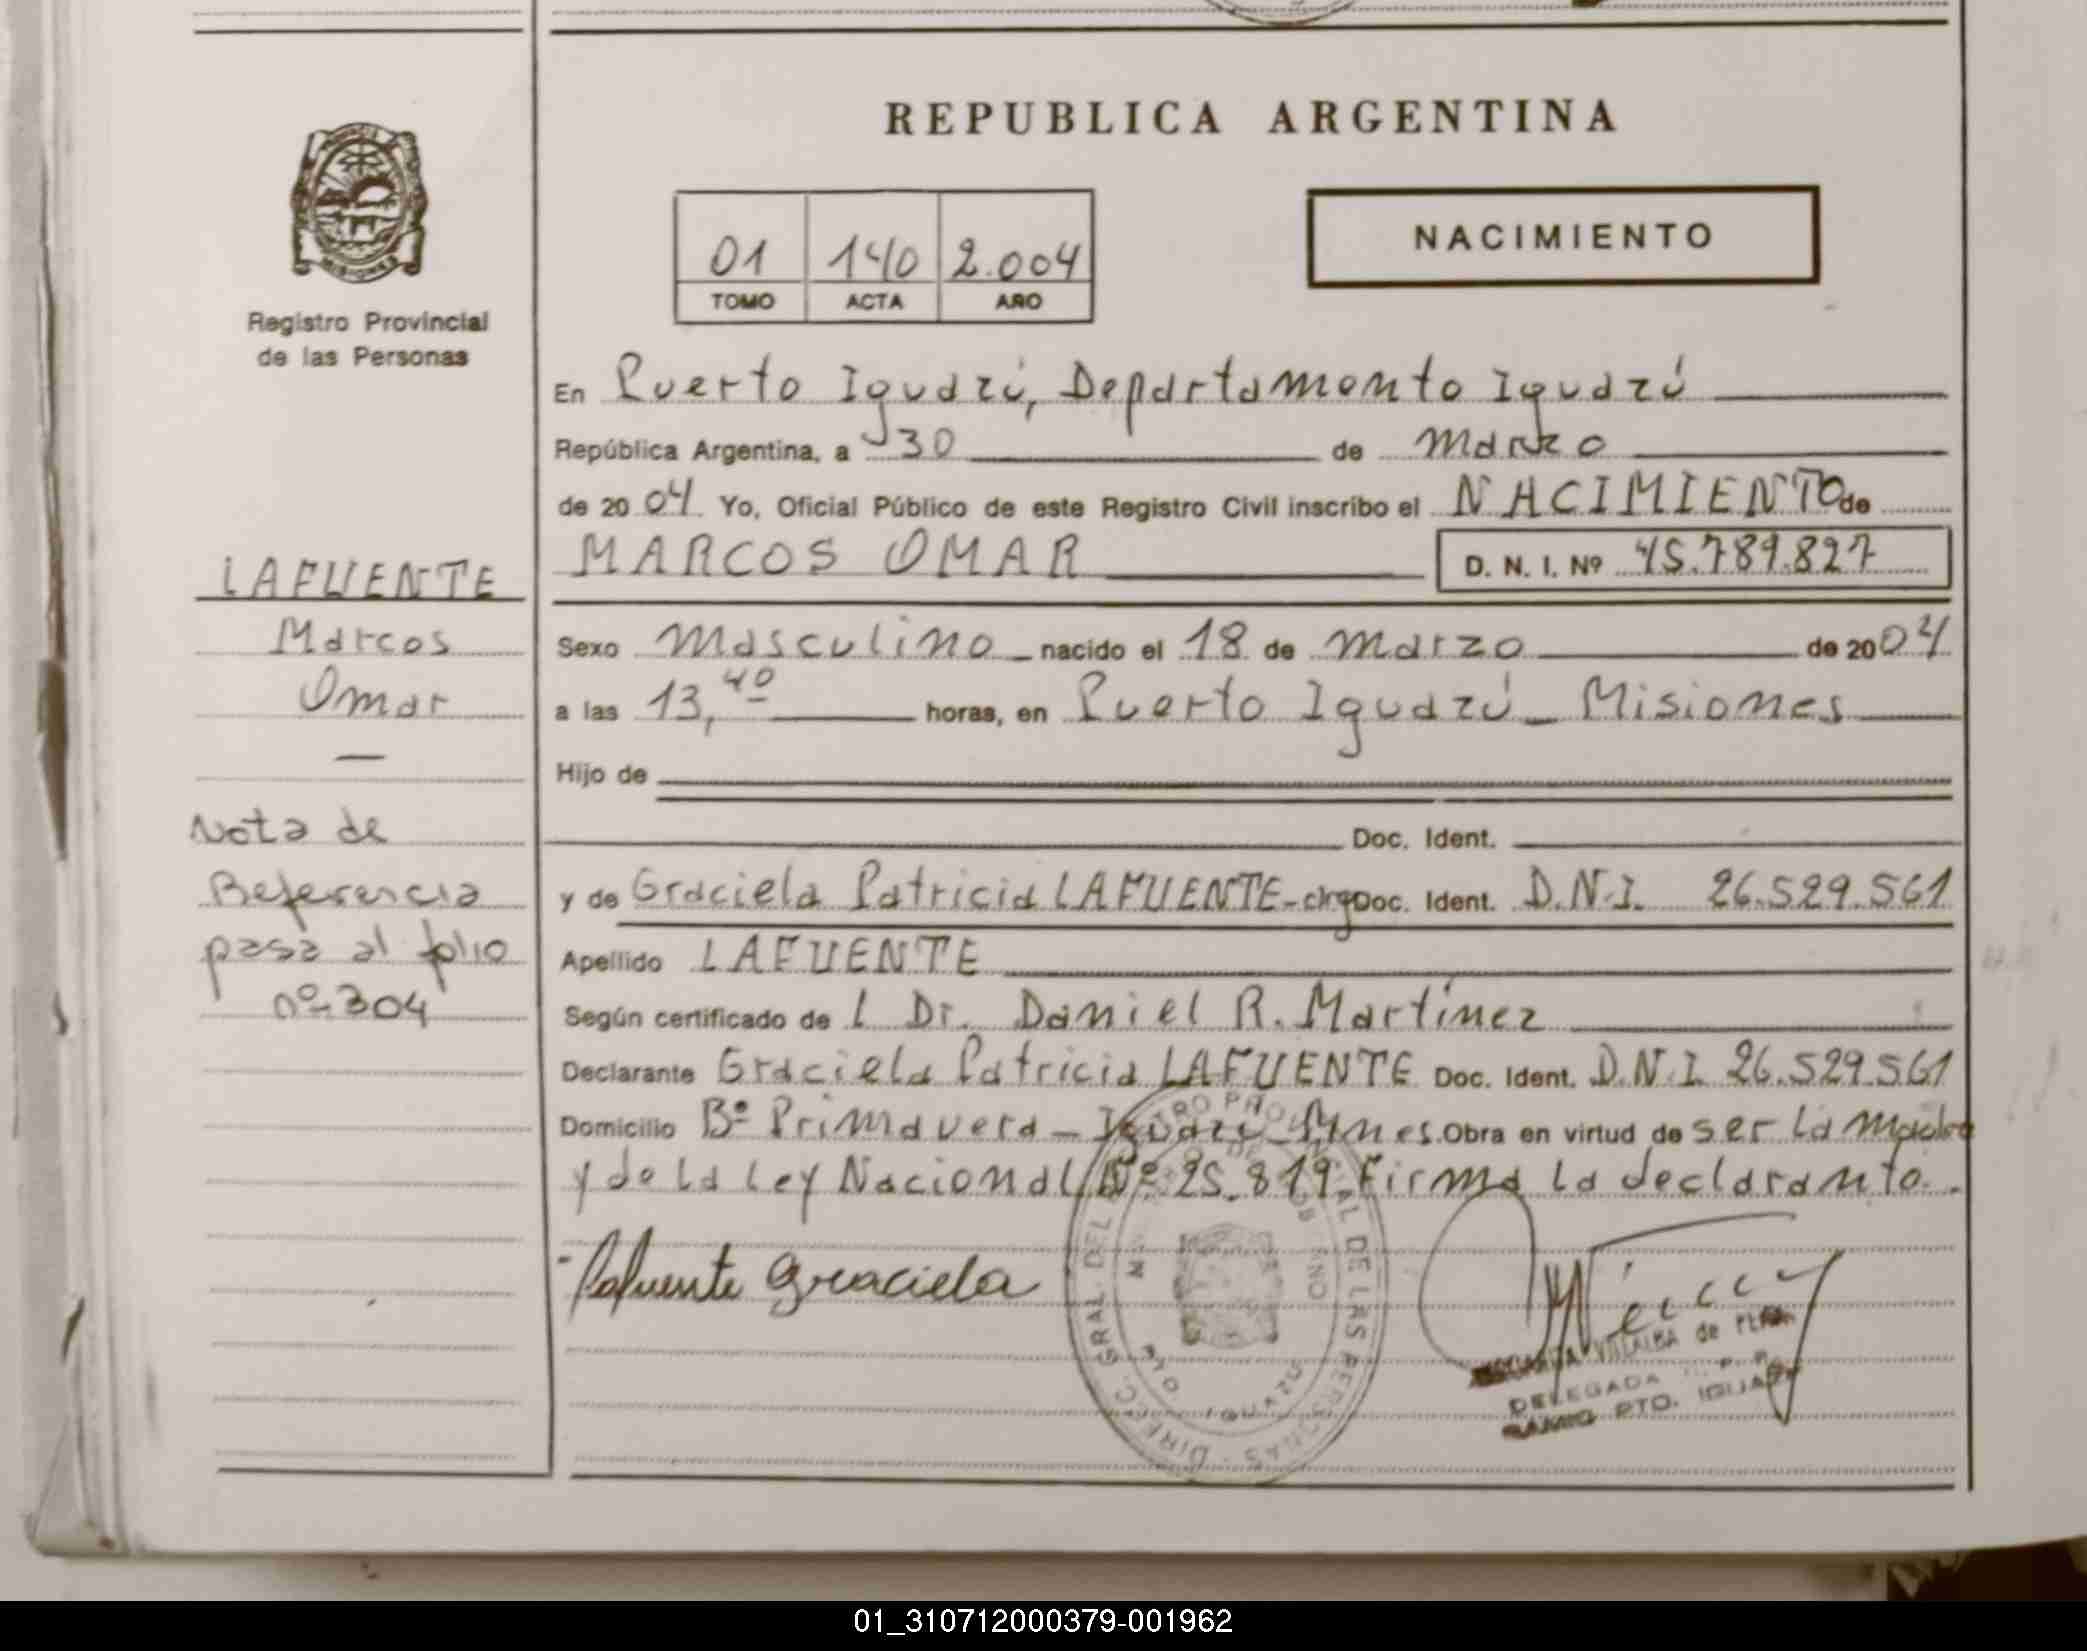 REPUBLICA ARGENTINA
MISIONES
Registro Provincial
de las Personas
01 140 2.004
TOMO ACTA AÑO
NACIMIENTO
En Puerto Iguazú, Departamento Iguazú
República Argentina, a 30 de Marzo
de 2004 Yo, Oficial Público de este Registro Civil inscribo el NACIMIENTO de
MARCOS OMAR D. N. I. Nº 45.789.827
LAFUENTE
Marcos
Omar
Sexo Masculino nacido el 18 de Marzo de 2004
a las 13,40 horas, en Puerto Iguazú - Misiones
Hijo de
Doc. Ident.
Nota de
Referencia
pasa al folio
nº 304
y de Graciela Patricia LAFUENTE - Doc. Ident. D.N.I. 26.529.561
Apellido LAFUENTE
Según certificado de l Dr. Daniel R. Martínez
Declarante Graciela Patricia LAFUENTE Doc. Ident. D.N.I. 26.529.561
Domicilio Bº Primavera - Iguazú - Mnes. Obra en virtud de ser la madre
y de la Ley Nacional Nº 25.819 Firma la declarante.
Lafuente Graciela
DIREC. GRAL. DEL REGISTRO PROVINCIAL DE LAS PERSONAS
IGUAZU
VILLALBA de
DELEGADA
PTO. IGUAZU
01_310712000379-001962